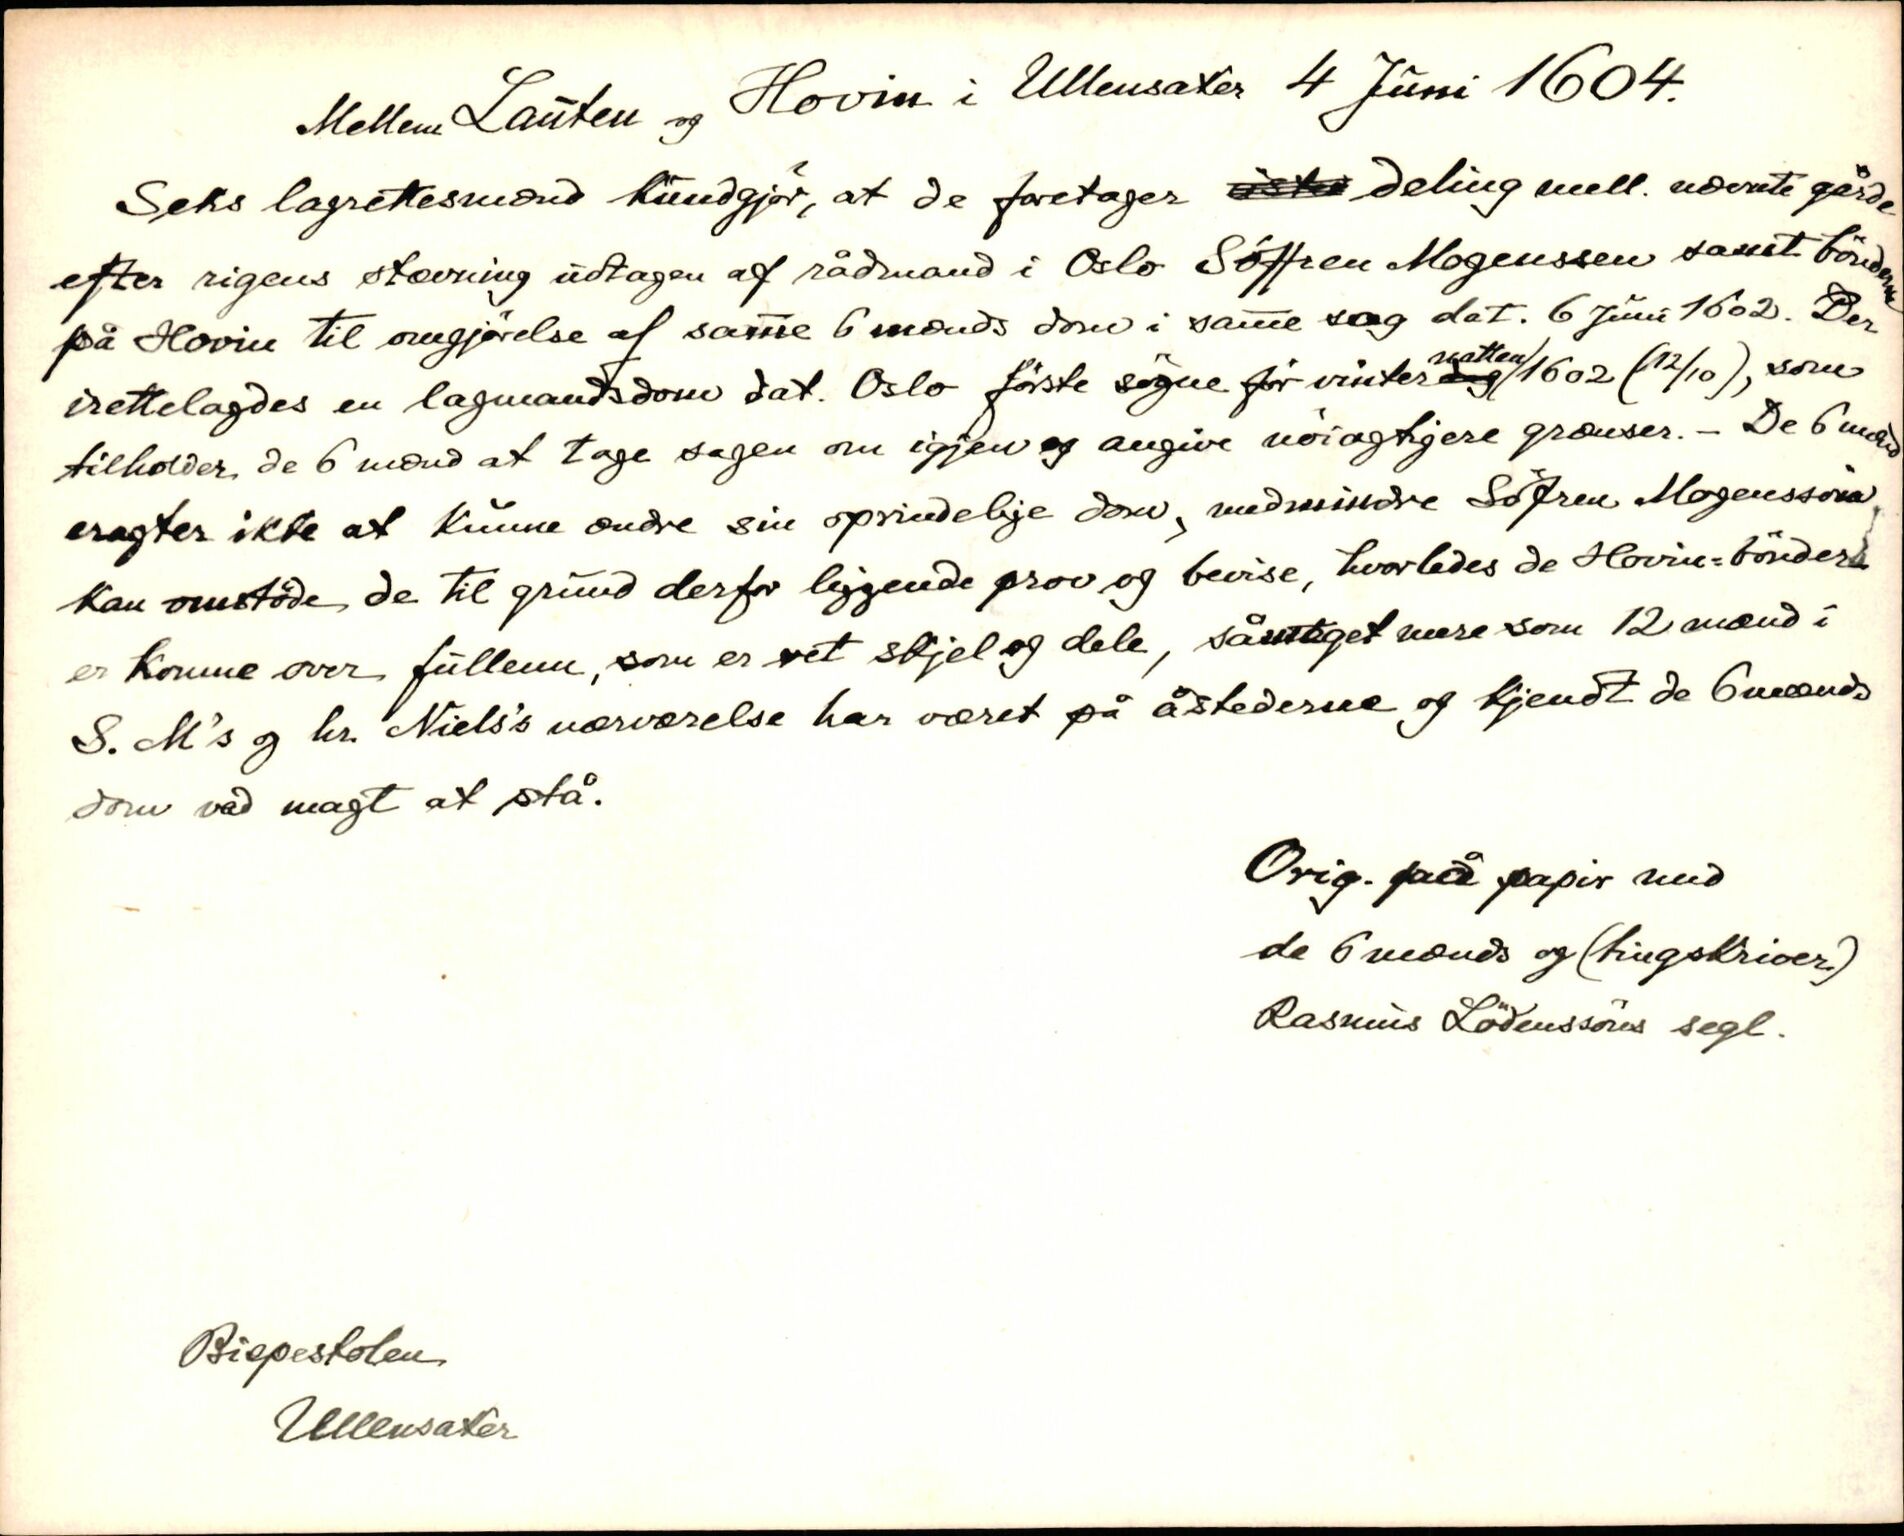 Mellem Lauten og Hovin i Ullensaker 4 Juni 1604.
Seks lagrettesmænd kundgjør, at de foretager deling mell. nævnte gårde
efter rigens stævning udtagen af rådmand i Oslo Söffren Mogenssen samt bönderne
på Hovin til omgjörelse af sam̄e 6 mænds dom i sam̄e sag dat. 6 Juni 1602. Der
irettelagdes en lagmandsdom dat. Oslo förste sögne för vinternatten 1602 (12/10), som
tilholder de 6 mænd at tage sagen om igjen og angive nöiagtigere grænser. – De 6 mænd
eragter ikke at kunne ændre sin oprindelige dom, medmindre Söfren Mogenssön
kan omstöde de til grund derfor liggende prov og bevise, hvorledes de Hovin-bönder
er komne over fullenn, som er ret skjel og dele, såmeget mere som 12 mænd i
S. M's og hr. Niels's nærværelse har været på åstederne og kjendt de 6 mænds
dom ved magt at stå.
Orig. på papir med
de 6 mænds og (tingskriver)
Rasmus Lödenssöns segl.
Bispestolen
Ullensaker